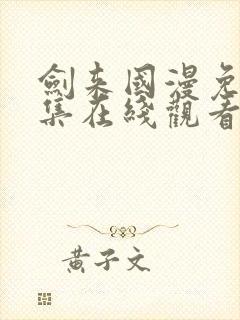 劍来國漫免
集在綫觀看
黄子文